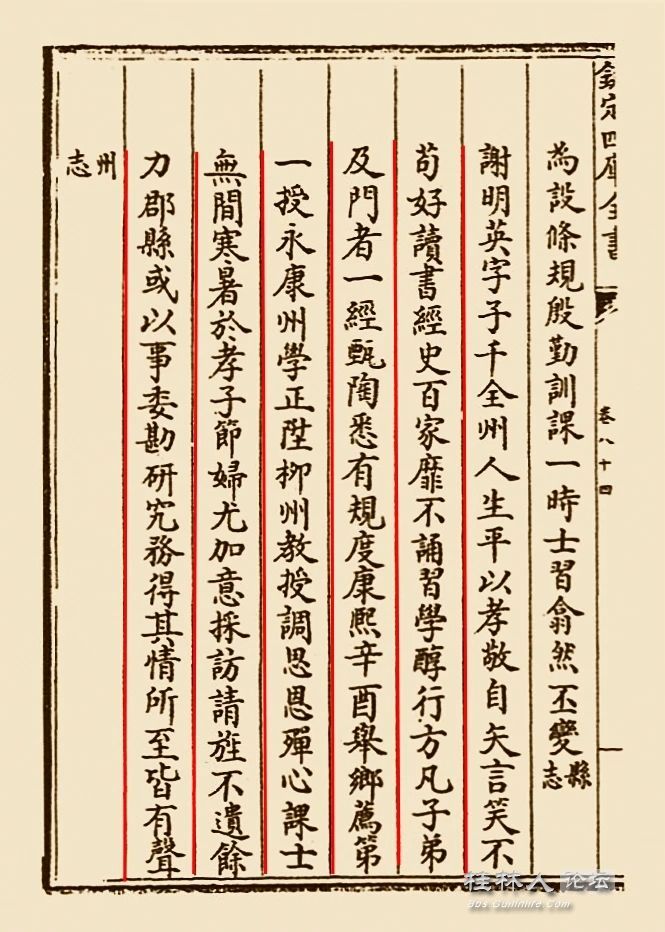 欽定四庫全書
卷八十四
為設條規殷勤訓課一時士習翕然丕變縣志
謝明英字子千全州人生平以孝敬自矢言笑不
苟好讀書經史百家靡不誦習學醇行方凡子弟
及門者一經甄陶悉有規度康熙辛酉舉鄉薦第
一授永康州學正陞柳州教授調思恩殫心課士
無間寒暑於孝子節婦尤加意採訪請旌不遺餘
力郡縣或以事委勘研究務得其情所至皆有聲
州志
桂林人论坛
bbs.Guilinlife.com